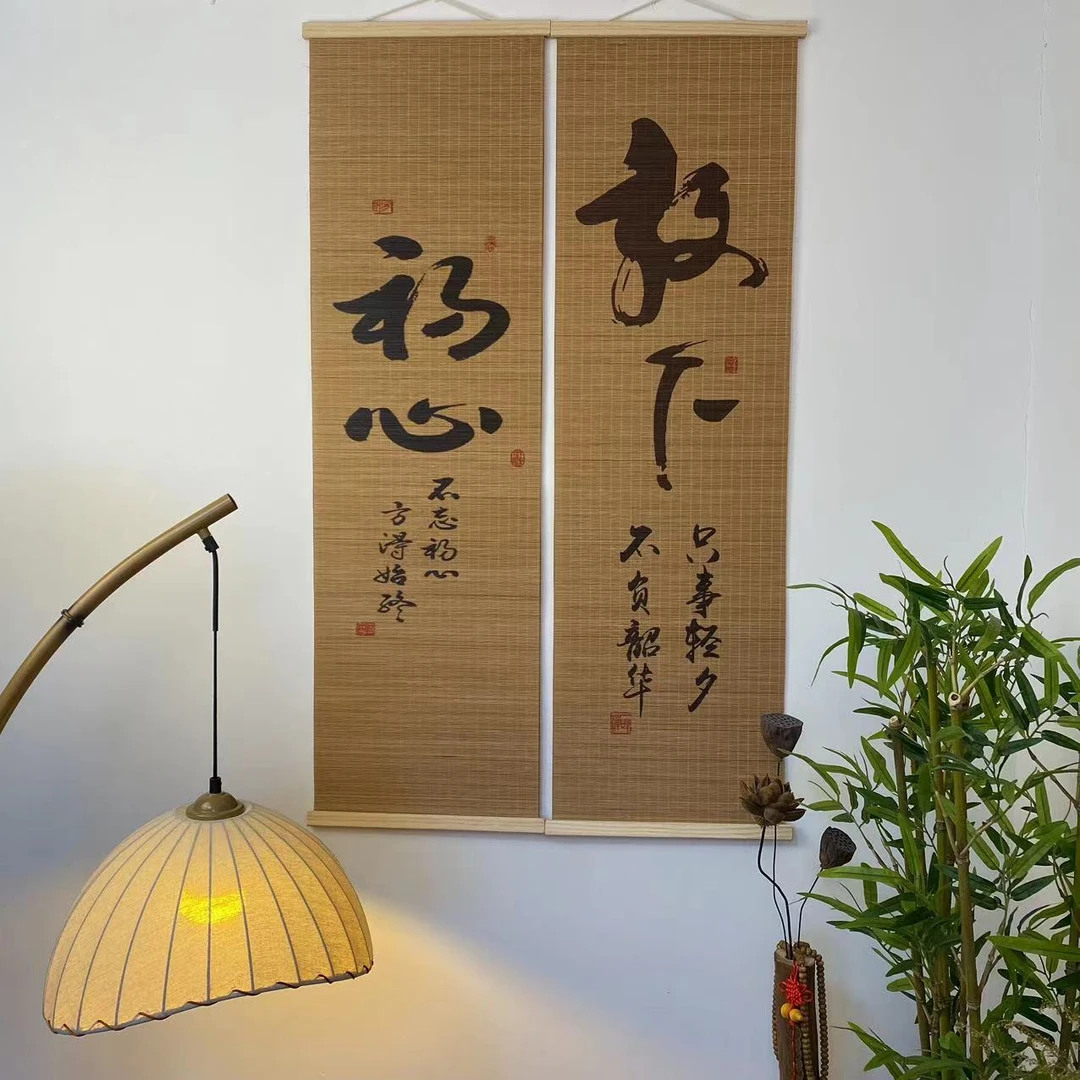 放下
只争朝夕
不负韶华
初心
不忘初心
方得始终